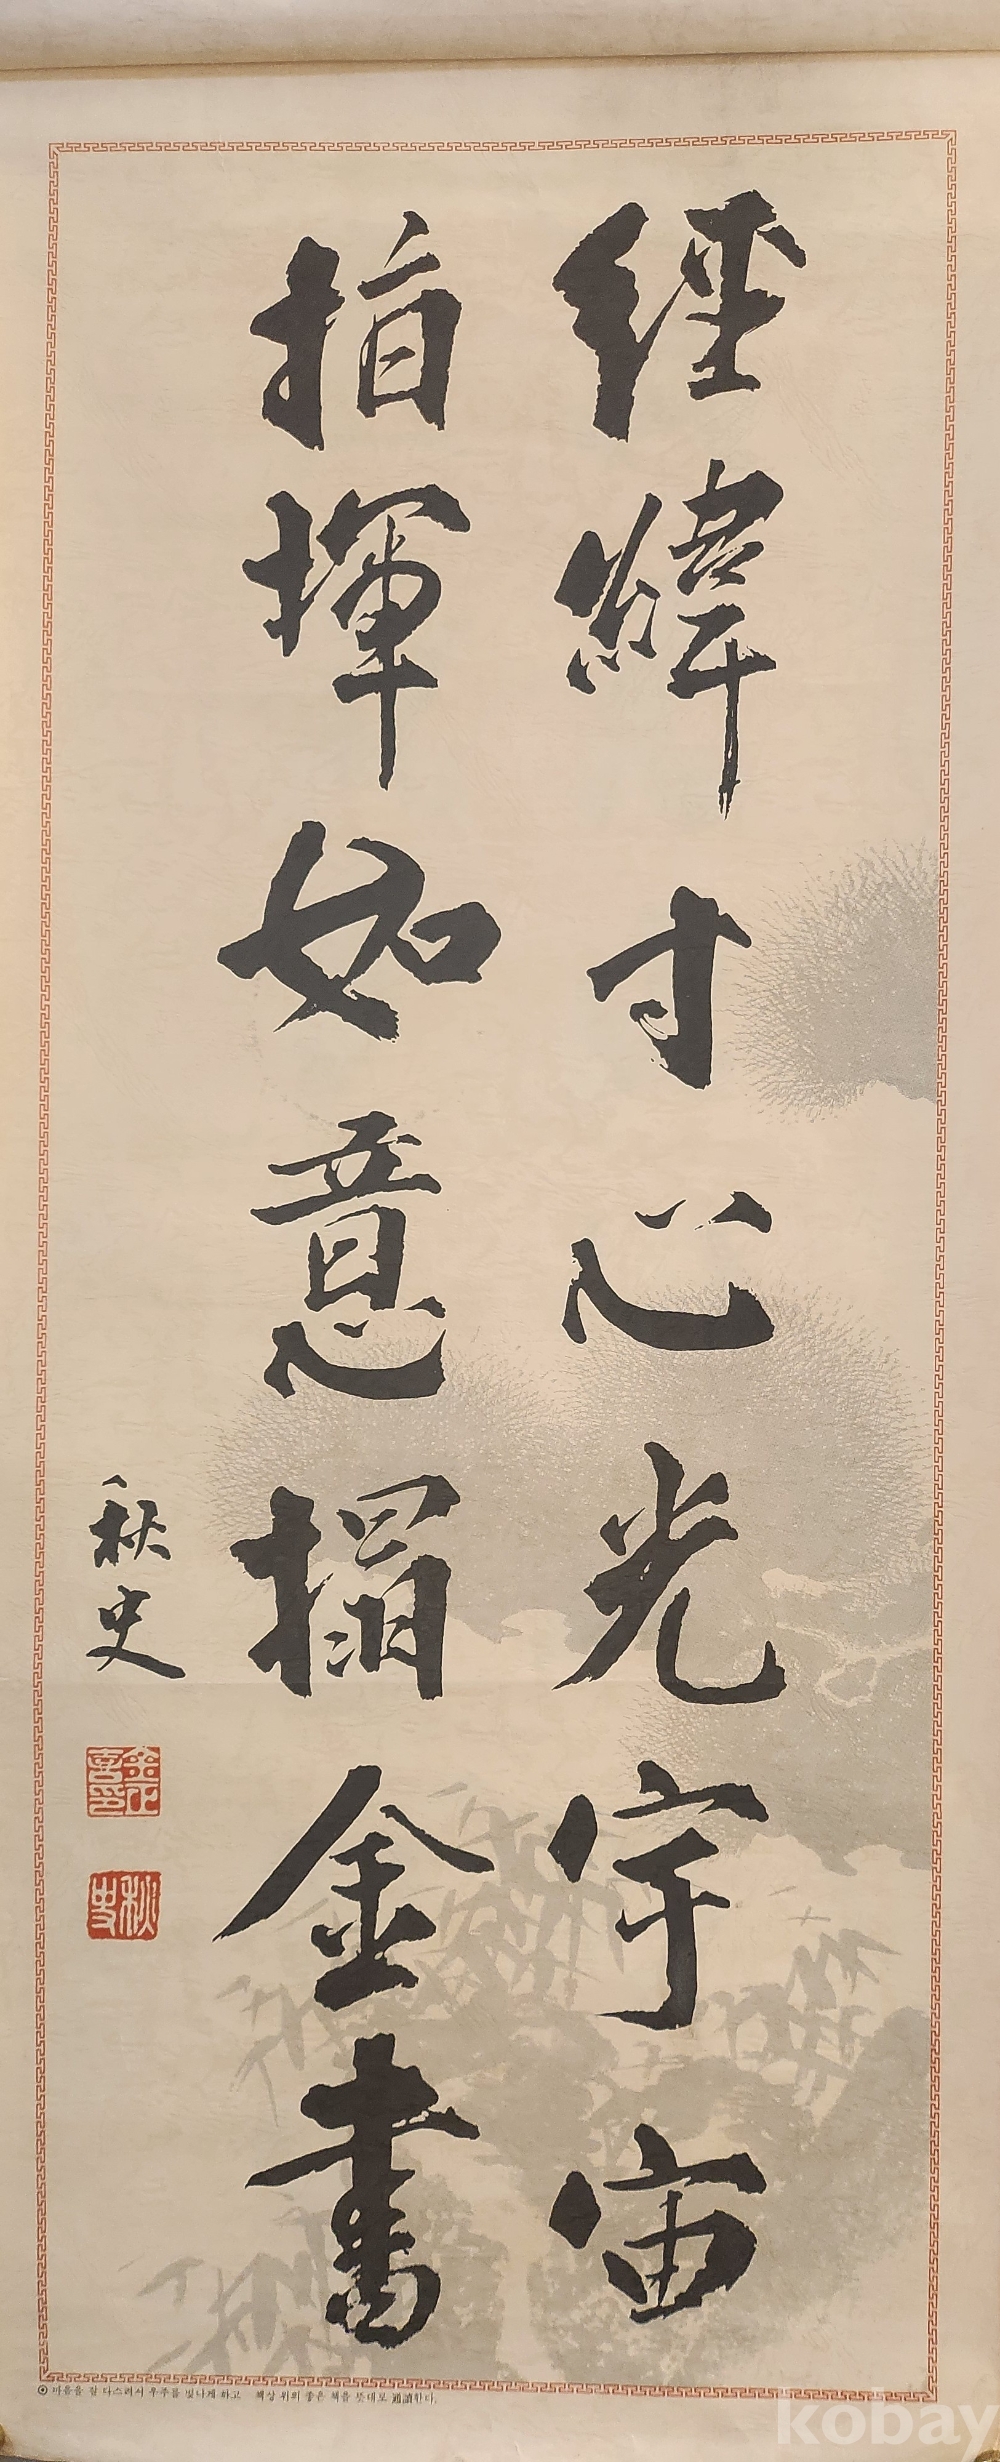 經緯寸心光宇宙
指揮如意揭金書
秋史
金正喜印
秋史
⊙ 마음을 잘 다스려서 우주를 빛나게 하고 책상 위의 좋은 책을 뜻대로 通讀한다.
kobay